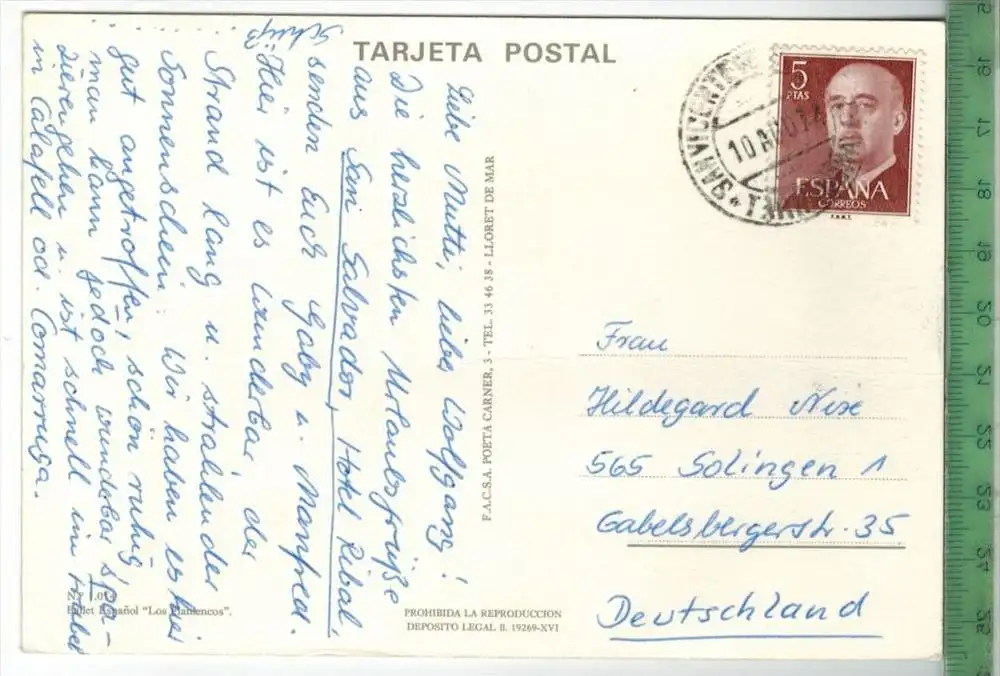 TARJETA POSTAL
Liebe Mutti, liebe Wolfgang!
Die herzlichsten Urlaubsgrüße
aus San Salvador, Hotel Ribal,
senden Euch Gaby u. Manfred.
Hier ist es wunderbar, der
Strand lang u. strahlender
Sonnenschein. Wir haben es hier
gut angetroffen, schön ruhig,
man kann jedoch wunderbar spa-
zierengehen u. ist schnell im
in Calafell od. Comarruga.
F.A.C.S.A. POETA CARNER, 3 - TEL. 33 46 38 - LLORET DE MAR
5
PTAS
ESPAÑA
CORREOS
F.N.M.T.
SAN VICENTE
10 AGO
Frau
Hildegard Nixe
565 Solingen 1
Gabelsbergerstr. 35
Deutschland
Ballet Español "Los Flamencos".
PROHIBIDA LA REPRODUCCION
DEPOSITO LEGAL B. 19269-XVI